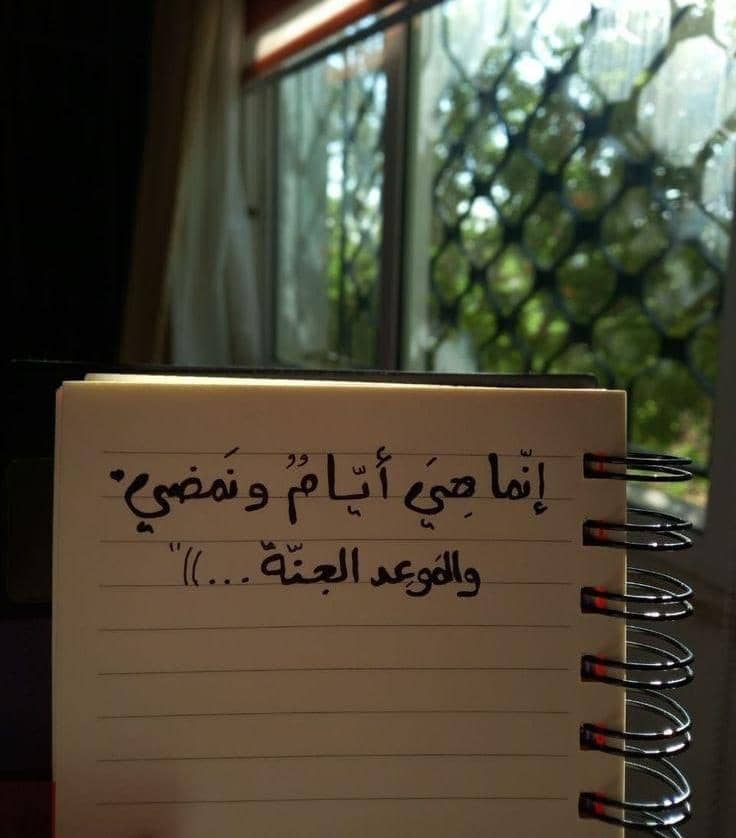 إنّما هِيَ أيّامٌ ونَمضي.
والمَوعِد الجنّة ...))"